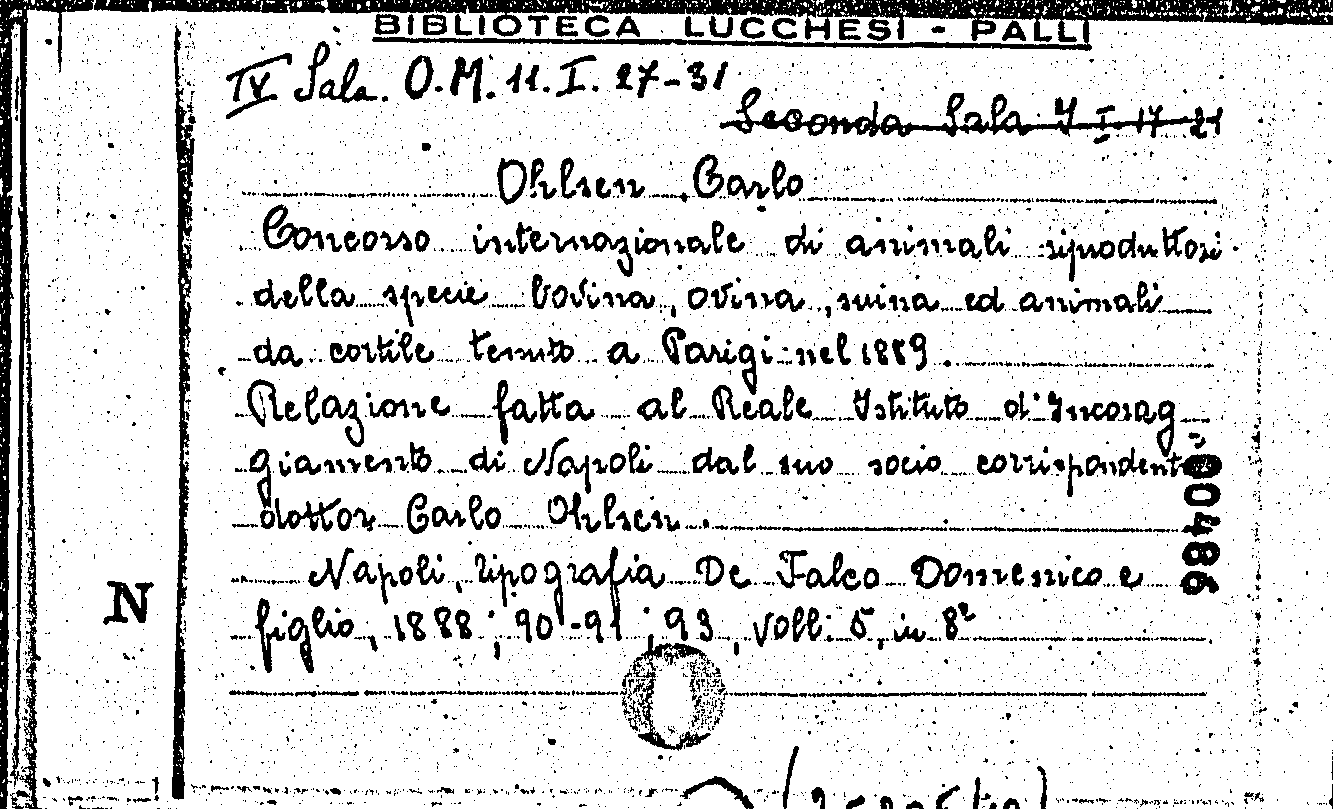 BIBLIOTECA LUCCHESI - PALLI
IV Sala. O.M. 11. I. 27-31
Seconda Sala I I 17 21
Ohlsen Carlo
Concorso internazionale di animali riproduttori
della specie bovina, ovina, suina ed animali
da cortile tenuto a Parigi nel 1889.
Relazione fatta al Reale Istituto d'Incorag
giamento di Napoli dal suo socio corrispondente
dottor Carlo Ohlsen.
Napoli, tipografia De Falco Domenico e
figlio, 1888; 90-91; 93, voll. 5, in 8º
N
000486